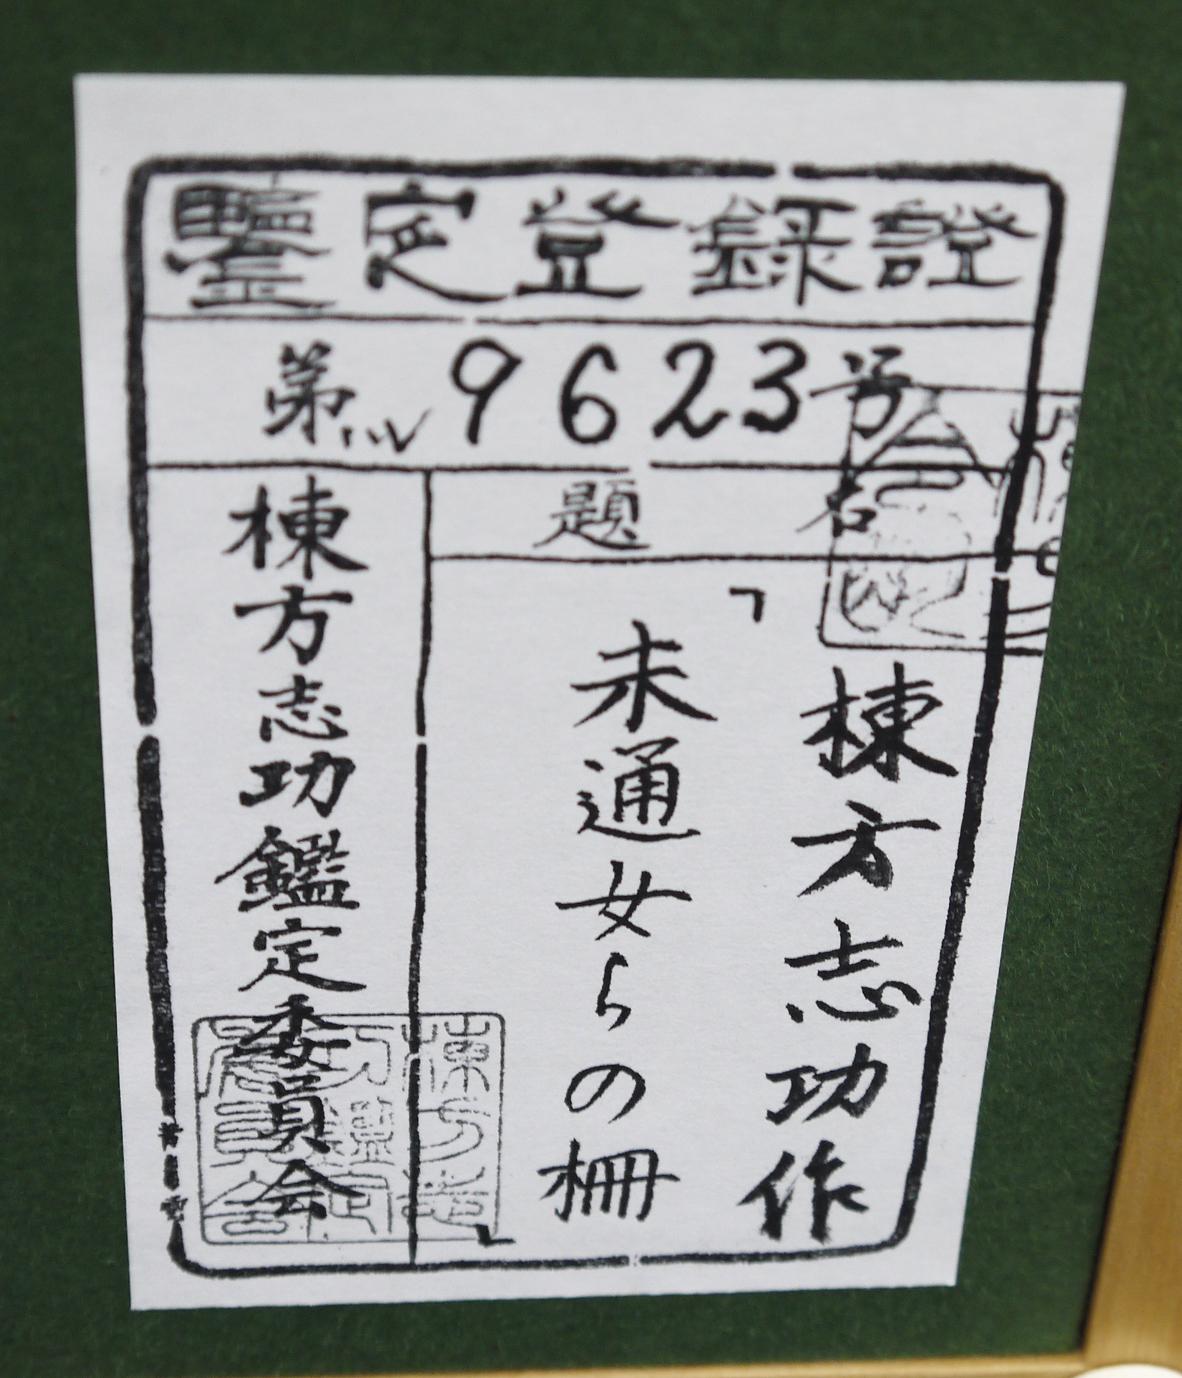 鑒定登録證
第 9623号
題名
棟方志功作
「未通女らの柵」
棟方志功鑑定委員会